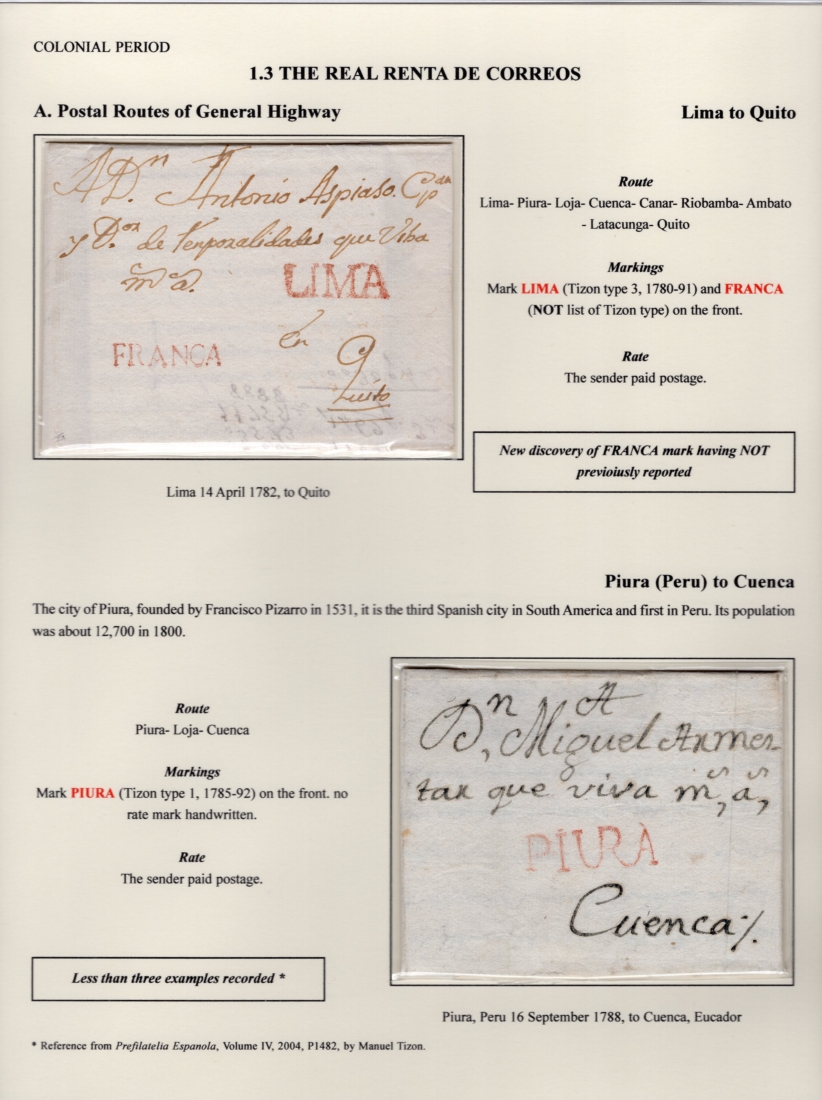 COLONIAL PERIOD
1.3 THE REAL RENTA DE CORREOS
A. Postal Routes of General Highway
Lima to Quito
A Dn Antonio Aspiaso. Cpan
y D.or de Temporalidades que Viba
ms as.
LIMA
FRANCA
En
Quito
Route
Lima- Piura- Loja- Cuenca- Canar- Riobamba- Ambato
- Latacunga- Quito
Markings
Mark LIMA (Tizon type 3, 1780-91) and FRANCA
(NOT list of Tizon type) on the front.
Rate
The sender paid postage.
New discovery of FRANCA mark having NOT
previoiusly reported
Lima 14 April 1782, to Quito
Piura (Peru) to Cuenca
The city of Piura, founded by Francisco Pizarro in 1531, it is the third Spanish city in South America and first in Peru. Its population
was about 12,700 in 1800.
Route
Piura- Loja- Cuenca
Markings
Mark PIURA (Tizon type 1, 1785-92) on the front. no
rate mark handwritten.
Rate
The sender paid postage.
Less than three examples recorded *
A
Dn, Miguel Armes-
tar que viva ms, as,
PIURA
Cuenca-/.
Piura, Peru 16 September 1788, to Cuenca, Eucador
* Reference from Prefilatelia Espanola, Volume IV, 2004, P1482, by Manuel Tizon.